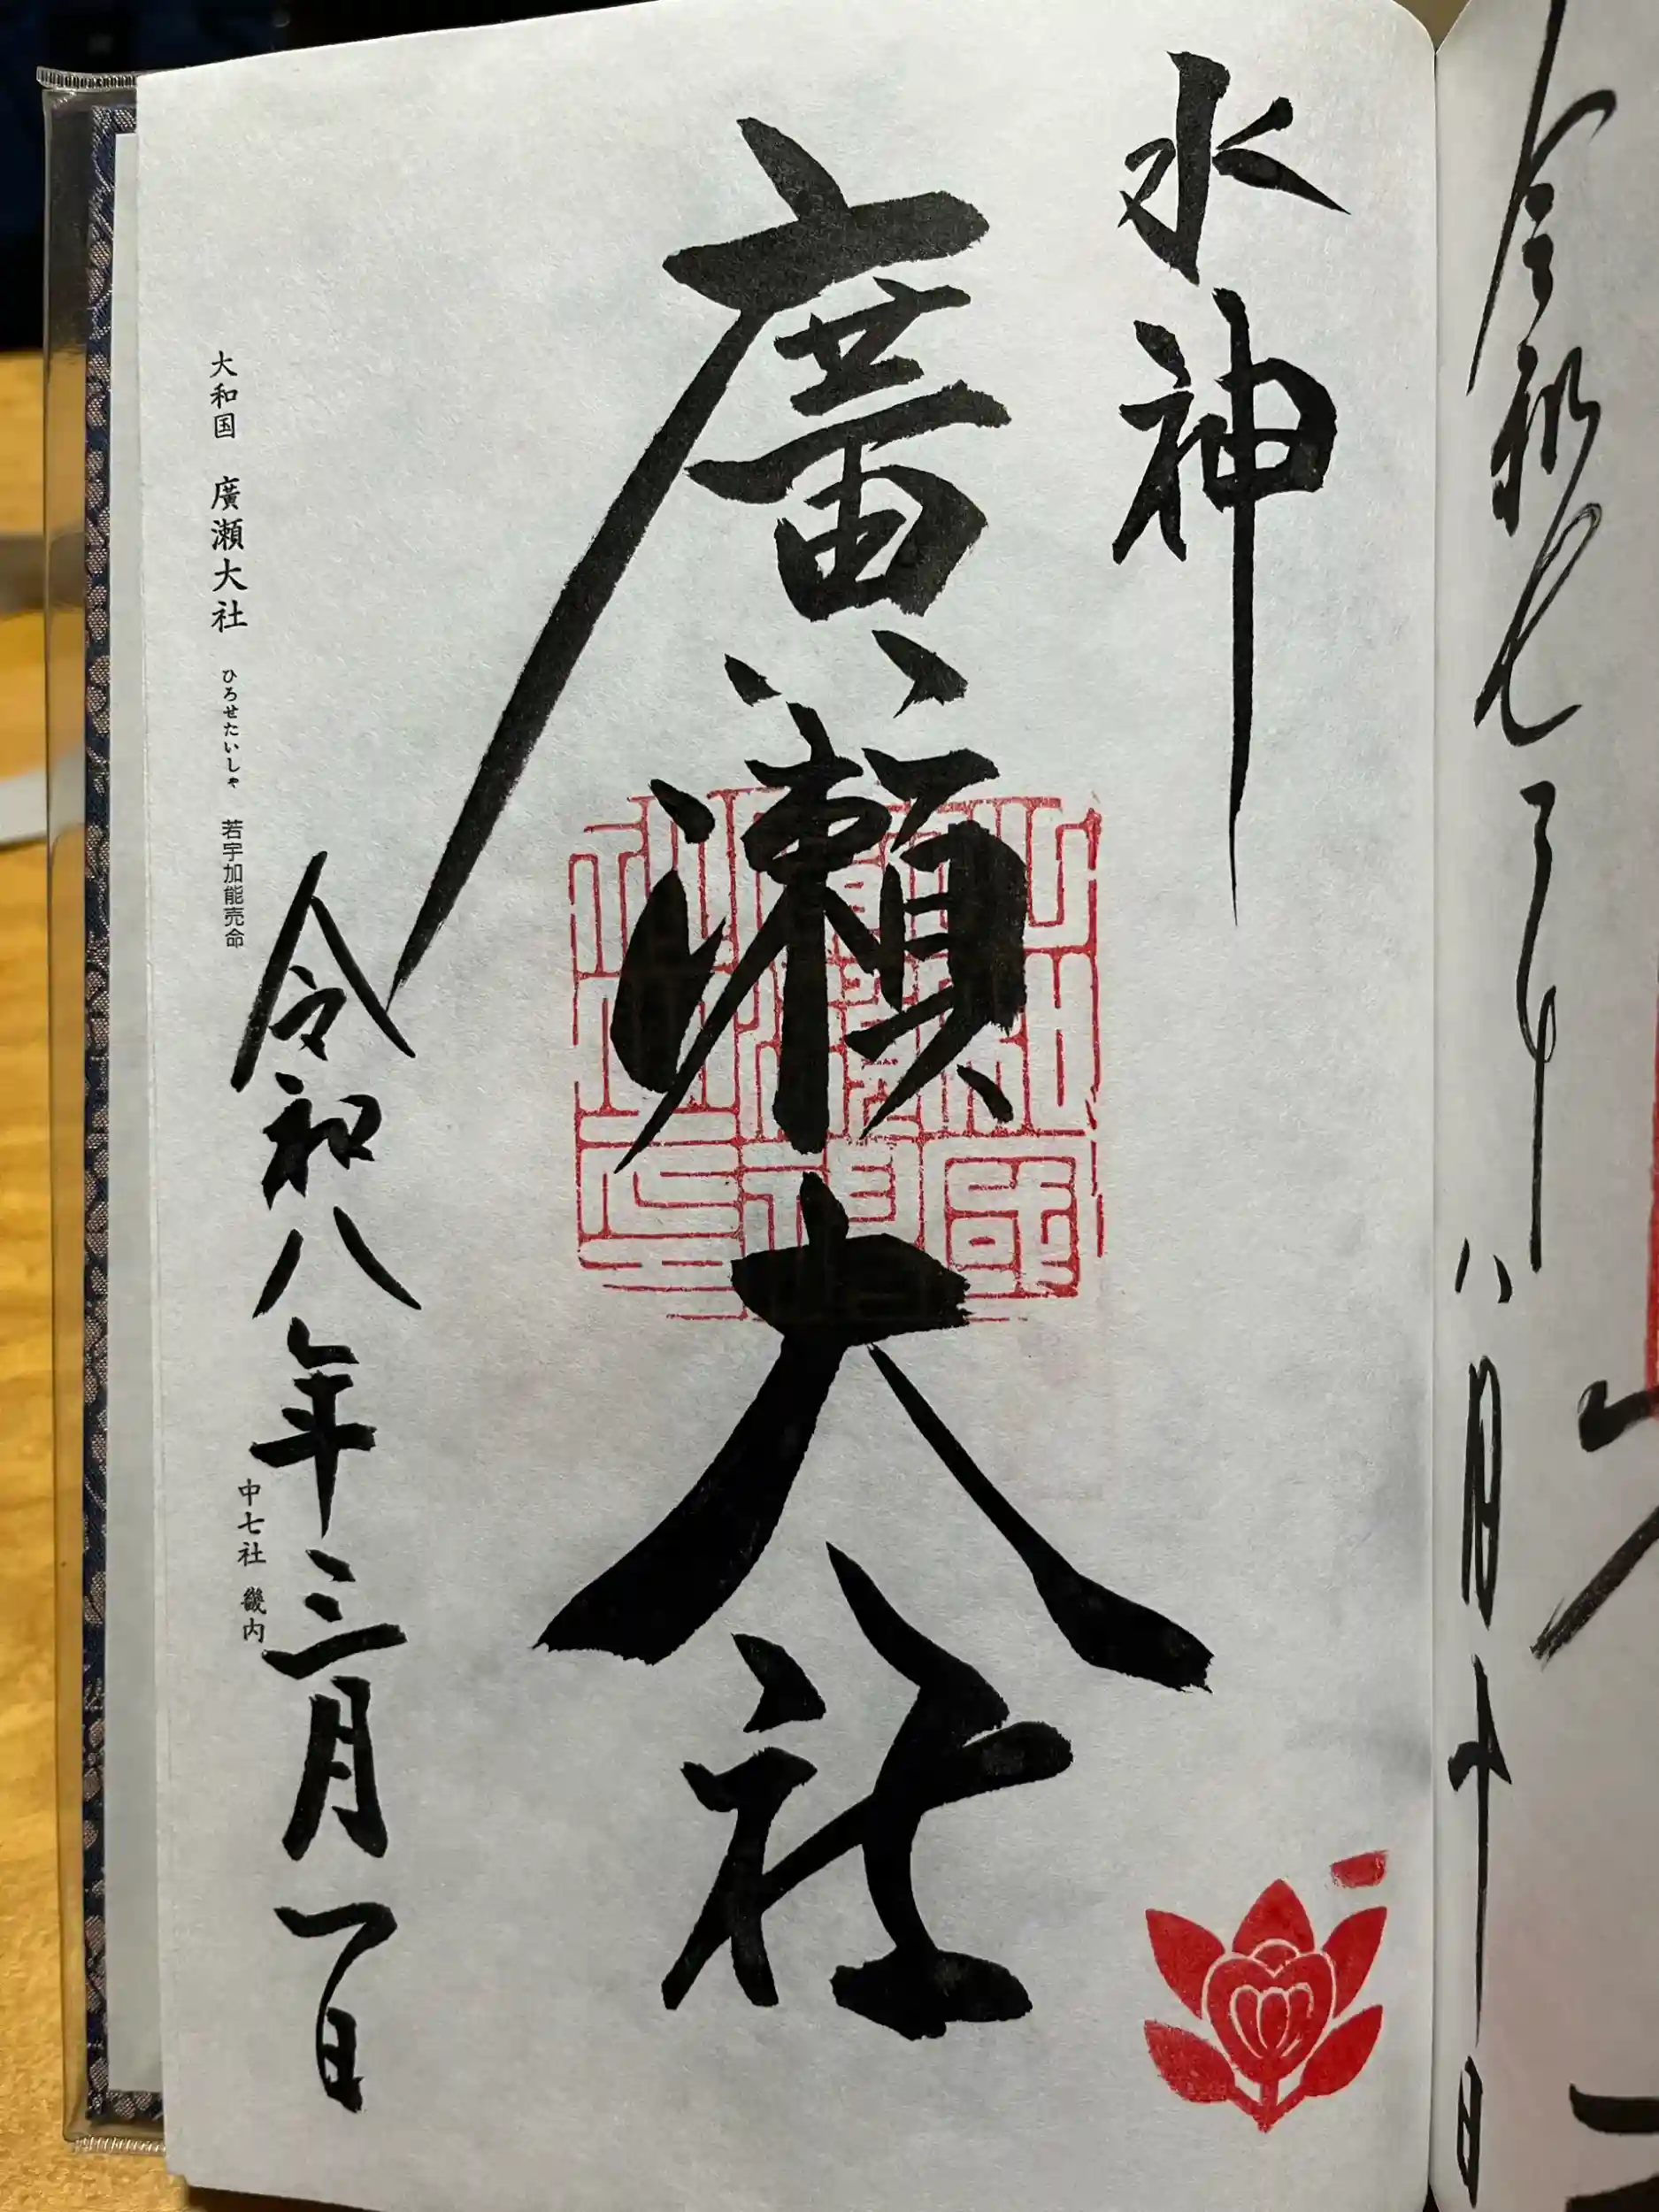 令和七年
八月十日
水神
廣瀬大社
令和八年三月一日
大和国 廣瀬大社 ひろせたいしゃ 若宇加能売命
中七社 畿内